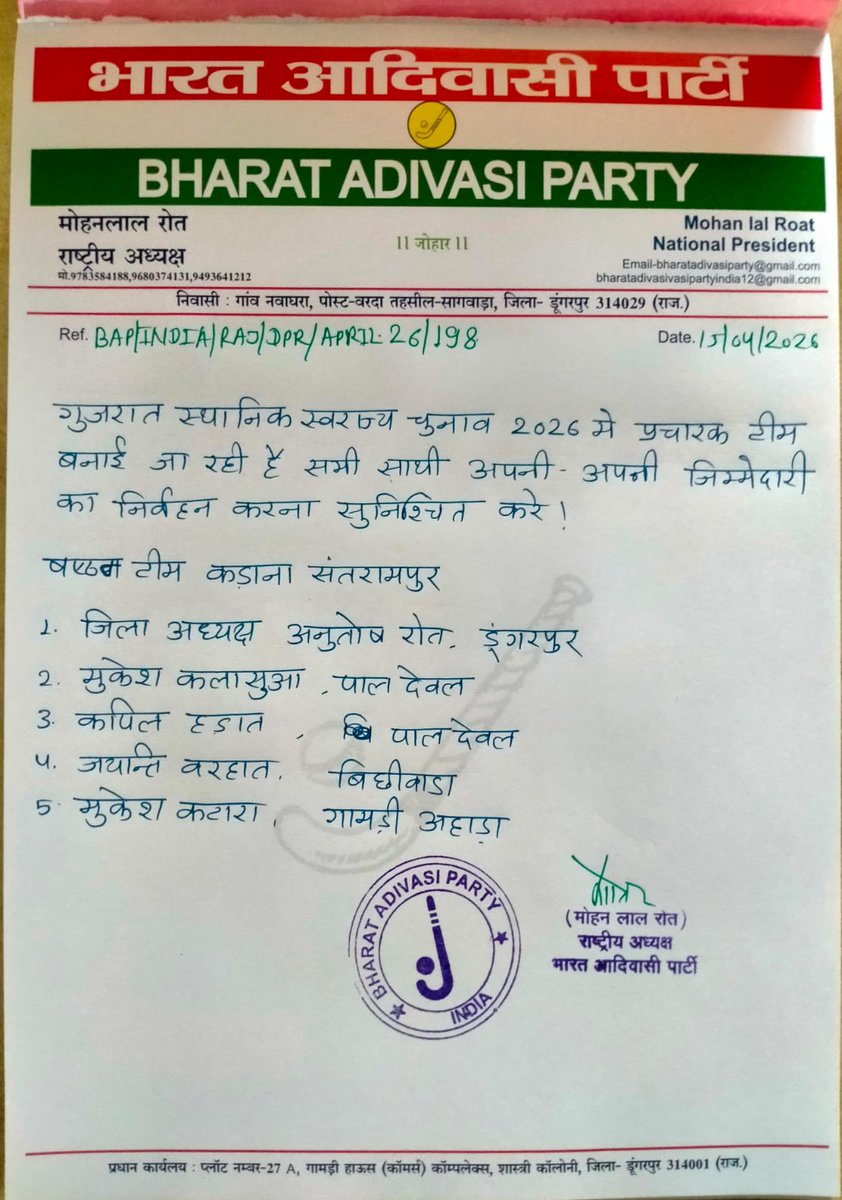 भारत आदिवासी पार्टी
BHARAT ADIVASI PARTY
मोहनलाल रोत
राष्ट्रीय अध्यक्ष
मो.9783584188,9680374131,9493641212
।। जोहार ।।
Mohan lal Roat
National President
Email-bharatadivasiparty@gmail.com
bharatadivasivasipartyindia12@gmail.com
निवासी : गांव नवाघरा, पोस्ट-वरदा तहसील-सागवाड़ा, जिला- डूंगरपुर 314029 (राज.)
Ref. BAP/INDIA/RAJ/DPR/APRIL-26/198
Date. 15/04/2026
गुजरात स्थानिक स्वराज्य चुनाव 2026 मे प्रचारक टीम
बनाई जा रही है सभी साथी अपनी-अपनी जिम्मेदारी
का निर्वहन करना सुनिश्चित करे !
टीम कड़ाना संतरामपुर
1. जिला अध्यक्ष अनुतोष रोत, डूंगरपुर
2. मुकेश कलासुआ, पाल देवल
3. कपिल हडात, पाल देवल
4. जयन्ति वरहात, बिछीवाडा
5. मुकेश कटारा, गामड़ी अहाड़ा
BHARAT ADIVASI PARTY
INDIA
(मोहन लाल रोत)
राष्ट्रीय अध्यक्ष
भारत आदिवासी पार्टी
प्रधान कार्यालय : प्लॉट नम्बर-27 A, गामड़ी हाऊस (कॉमर्स) कॉम्पलेक्स, शास्त्री कॉलोनी, जिला- डूंगरपुर 314001 (राज.)